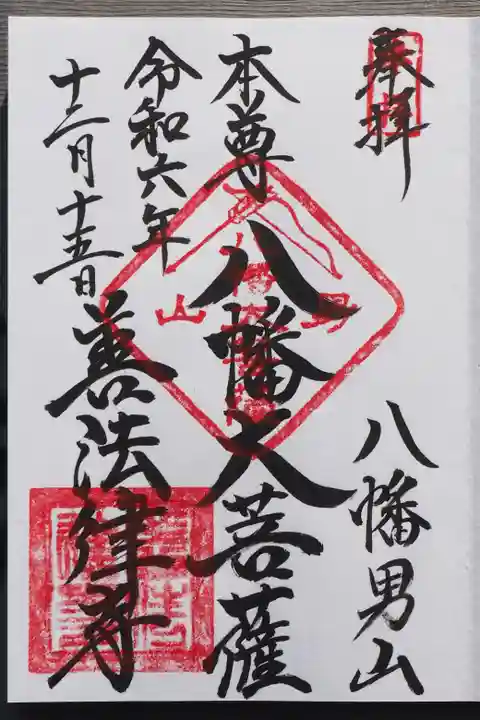 奉拝
八幡男山
本尊
八幡大菩薩
令和六年
十二月十五日
善法律寺